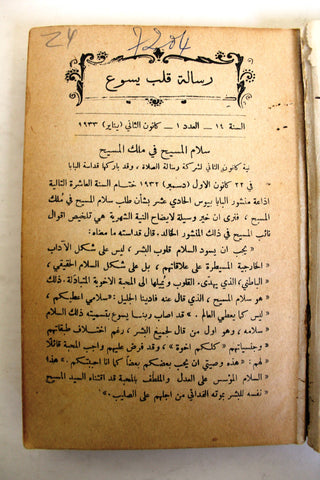 24
7204
رسالة قلب يسوع
السنة ١٤ – العدد ١ – كانون الثاني (يناير) ١٩٣٣
سلام المسيح في ملك المسيح
نية كانون الثاني لشركة رسالة الصلاة ، وقد باركها قداسة البابا
في ٢٢ كانون الاول (دسمبر) ١٩٣٢ ختام السنة العاشرة التالية
اذاعة منشور البابا بيوس الحادي عشر بشأن طلب سلام المسيح في مُلك
المسيح ، فنرى ان خير وسيلة لايضاح النية الشهرية هي تلخيص اقوال
نائب المسيح في ذلك المنشور الخالد. قال قداسته ما معناه :
« يجب ان يسود السلام قلوب البشر ، ليس على شكل الآداب
« الخارجية المسيطرة على علاقاتهم ، بل على شكل السلام الحقيقي ،
« الباطني ، الذي يهدئ القلوب ويُميلها الى المحبة الاخوية المتبادلة. ذلك
« هو سلام المسيح ، الذي قال عنه فادينا الجليل : «سلامي اعطيكم ،
« ليس كما يعطي العالم . » قد اصاب ربنا يسوع بتسميته ذلك السلام
« سلامه ، وهو اول من قال لجميع البشر ، رغم اختـلاف طبقاتهم
« وجنسياتهم « كلكم اخوة » ، وقد فرض عليهم واجب المحبة قائلًا
« لهم : « هذه وصيتي ان يحب بعضكم بعضاً كما انا احببتكم . » هذا
« السلام المؤسس على العدل والملطَّف بالمحبة قد اقتناه السيد المسيح
« نفسه للبشر بموته الفدائي من اجلهم على الصليب .»